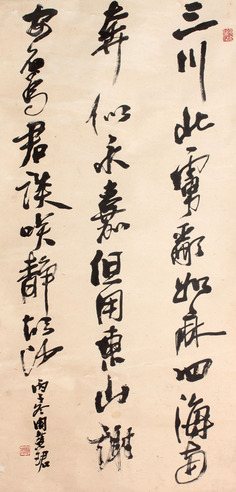 三川北虜亂如麻四海南
奔似永嘉但用東山謝
安石為君談咲靜胡沙
丙子冬周慧珺